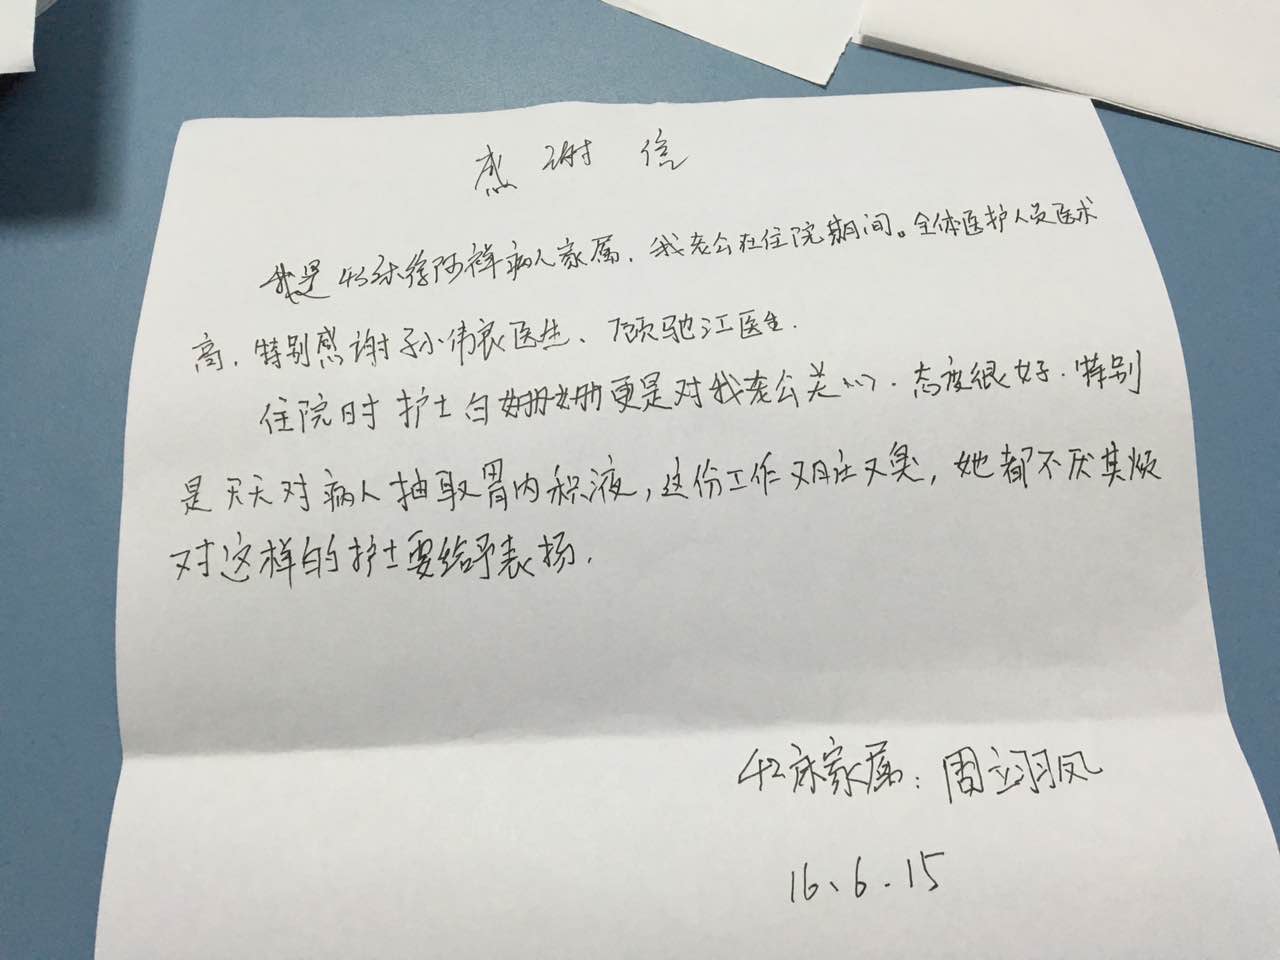 感谢信
我是43床徐阿祥病人家属，我老公在住院期间。全体医护人员医术
高，特别感谢孙伟良医生、顾驰江医生.
住院时护士白姗姗更是对我老公关心.态度很好.特别
是天天对病人抽取胃内积液，这份工作又脏又臭，她都不厌其烦
对这样的护士要给予表扬.
42床家属：周翊凤
16.6.15